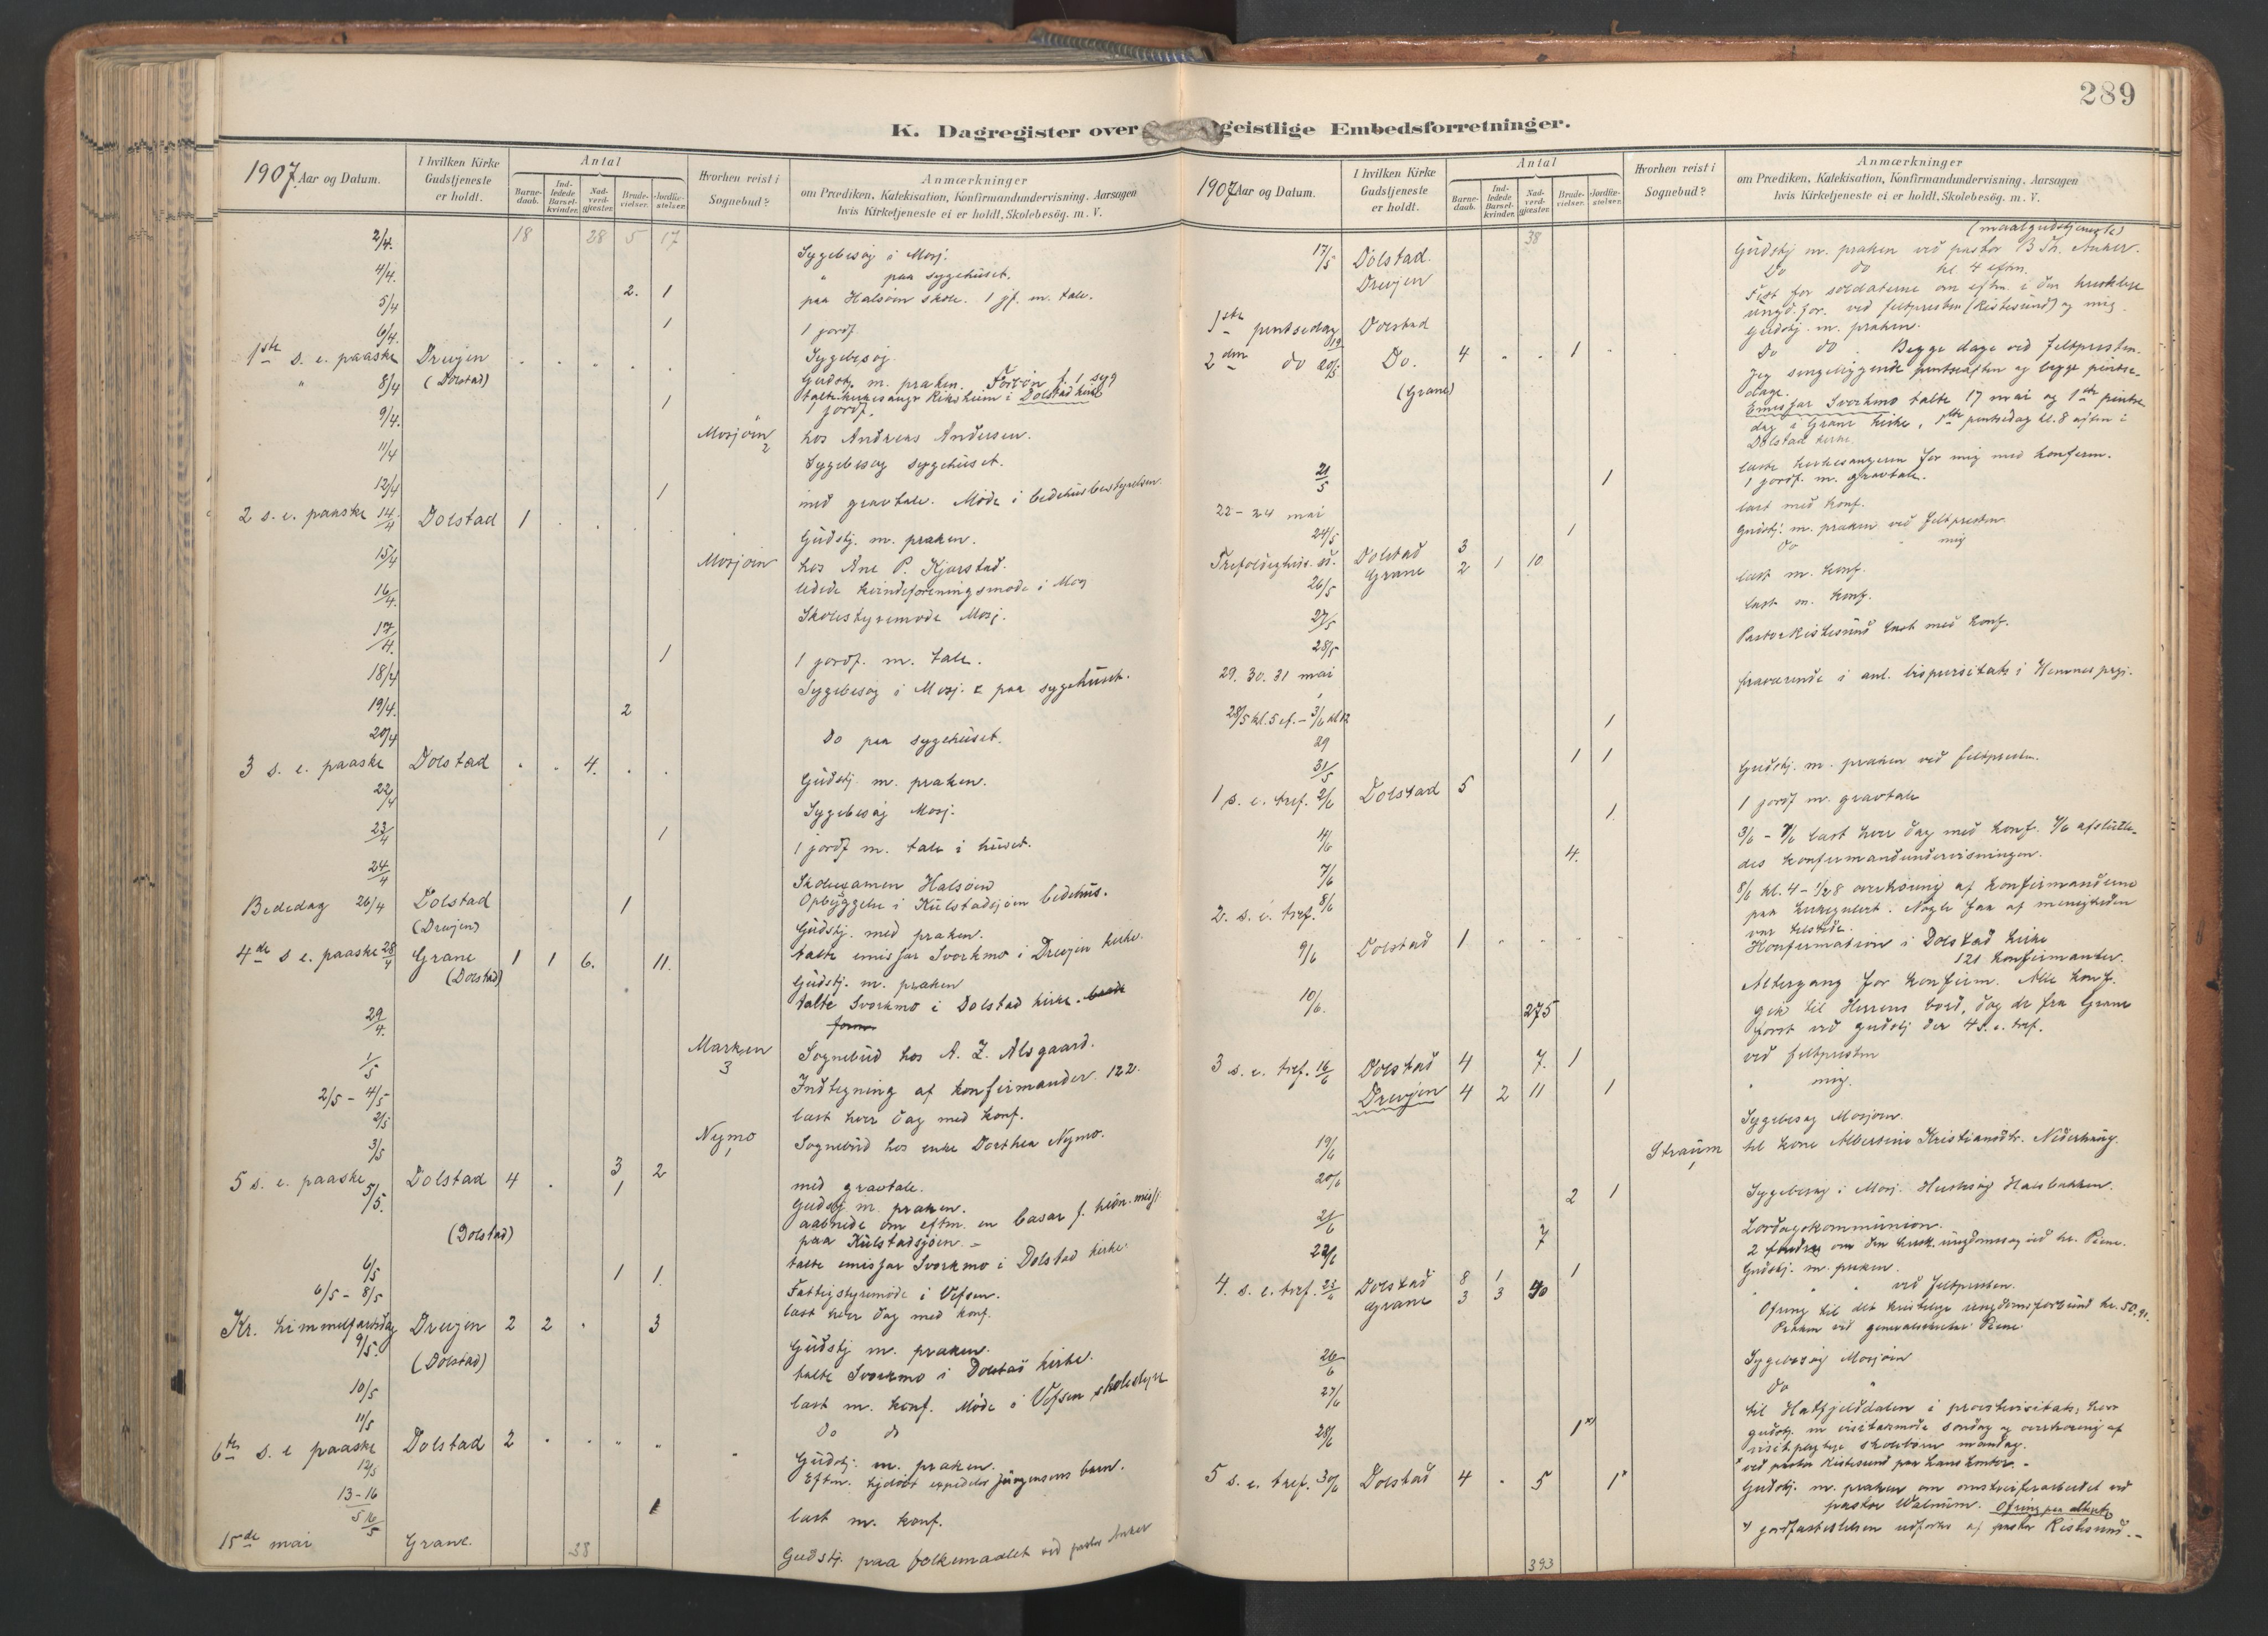 289
K. Dagregister over geistlige Embedsforretninger.
1907. Aar og Datum.
I hvilken Kirke Gudstjeneste er holdt.
Antal
Barnedaab.
Indledede Barselkvinder.
Nadverdgjæster.
Brudevielser.
Jordfæstelser.
Hvorhen reist i Sognebud?
Anmærkninger
om Prædiken, Katekisation, Konfirmandundervisning. Aarsagen
hvis Kirketjeneste ei er holdt, Skolebesög. m. V.
18 28 5 17
2/4. Sygebesøg i Mosj.
4/4. " paa sygehuset.
5/4 2. 1 paa Halsøen skole. 1 jf. m. tale.
6/4. 1 1 jordf.
1ste s. e. paaske Drevjen Sygebesøg.
" 8/4 (Dolstad) Gudstj. m. præken. Forbøn f. 1 syg
talte i Dolstad kirke
9/4. 1 1 jordf.
Mosjøen 2 hos Andreas Andersen.
11/4 Sygebesøg sygehuset.
12/4 1 med gravtale. Møde i bedehusbestyrelsen.
2 s. e. paaske 14/4 Dolstad 1 Gudstj. m. præken.
15/4 Mosjøen hos Ane P. Kjærstad.
16/4. ledede kvindeforeningsmøde i Mosj
17/4. Skolestyremøde Mosj.
1 1 jordf. m. tale.
18/4 Sygebesøg i Mosj. & paa sygehuset.
19/4. 2
20/4 Do paa sygehuset.
3 s. e. paaske Dolstad 4. Gudstj. m. præken.
22/4 Sygebesøg Mosj.
23/4 1 1 jordf m. tale i huset.
24/4 Skoleexamen Halsøen
Opbyggelse i Kulstadsjøen bedehus.
Bededag 26/4 Dolstad 1 Gudstj. med præken.
(Drevjen) talte emissær Svorkmo i Drevjen kirke.
4de s e. paaske 28/4 Grane 1 1 6. 11. Gudstj. m. præken
(Dolstad) talte Svorkmo i Dolstad kirke.
29/4. Marken 3 Sognebud hos A. Z. Alsgaard.
1/5 Indtegning af konfirmander. 122.
2/5 - 4/5 læst hver dag med konf.
2/5 Nymo 1 Sognebud hos enke Dorthea Nymo.
3/5 3 2 med gravtale.
5 s. e. paaske 5/5. Dolstad 4 1 Gudstj m. præken.
aabnede om eftm. en basar f.
paa Kulstadsjøen. -
(Dolstad) talte emissær Svorkmo i Dolstad kirke.
6/5 1 1. Fattigstyremøde i Vefsen.
6/5 - 8/5 læst hver dag med konf.
Kr. himmelfartsdag 9/5. Drevjen 2 2 3 Gudstj m. præken.
(Dolstad) talte Svorkmo i Dolstad kirke.
10/5 læst m. konf. Møde i Vefsen skolestyre
11/5 Do do
6te s. e paaske 12/5 Dolstad 2 Gudstj. m. præken.
Eftm. hjdøbt expeditør Jørgensens barn.
13-16/5 1 læst m. konf.
15de mai Grane. 38 Gudstj. paa folkemaalet ved pastor Anker
1907 Aar og Datum.
I hvilken Kirke Gudstjeneste er holdt.
Antal
Barnedaab.
Indledede Barselkvinder.
Nadverdgjæster.
Brudevielser.
Jordfæstelser.
Hvorhen reist i Sognebud?
Anmærkninger
om Prædiken, Katekisation, Konfirmandundervisning. Aarsagen
hvis Kirketjeneste ei er holdt, Skolebesög. m. V.
38 (maalgudstjeneste)
17/5 Dolstad. Gudstj m. præken ved pastor B Th. Anker.
Drevjen Do do kl. 4 eftm.
Fest for soldaterne om eftm. i den kristelige
ungd.for. ved feltpresten (Ristesund) og mig.
1ste pintsedag 19 Dolstad Gudstj. m. præken.
2den do 20/5 Do. 4 1 Do do. Begge dage ved feltpresten.
(Grane) Jeg sengeliggende pintseaften og begge pintsedage.
Emissær Svorkmo talte 17 mai og 1ste pintsedag
i Grane kirke, pintsedag kl. 8 aften i
Dolstad kirke.
21/5 læste kirkesangeren for mig med konfirm.
1 1 jordf. m. gravtale.
22 - 24 mai læst med konf.
24/5 1
Trefoldigheds. s. 26/5 Dolstad 3 Gudstj. m. præken ved feltpresten.
Grane 2 1 10 do " mig
27/5 læst m. konf.
28/5 læst m. konf.
29. 30. 31 mai Pastor Ristesund læst med konf.
28/5 kl. 5 ef. - 3/6 kl 12 fraværende i anl. bispevisitats i Hemnes prgj.
29 1
31/5 1 1
1 s. e. tref. 2/6 Dolstad 5 Gudstj. m. præken ved feltpresten.
4/6 1. 1 jordf m. gravtale
7/6 4. 3/6 - 7/6 læst hver dag med konf. 7/6 afsluttedes
konfirmandundervisningen.
8/6 8/6 kl. 4 - 1/2 8 overhøring af konfirmanderne
paa kirkegulvet. Nogle faa af menigheden
var tilstede.
2. s. e. tref. 9/6 Dolstad 1 Konfirmation i Dolstad kirke
121 konfirmanter.
10/6. 275 Altergang for konfirm. Alle konf.
gik til Herrens bord, dog de fra Grane
først ved gudstj der 4 s. e. tref.
3 s. e. tref. 16/6 Dolstad 4 7. 1 ved feltpresten
Drevjen 4 2 11 1 " mig.
19/6 Sygebesøg Mosjøen.
20/6 Straum 1 til kone Albersine Kristiansdtr. Nederhaug.
21/6 2 1 Sygebesøg i Mosj. Husbesøg Halsbakken.
22/6 7 Lørdagskommunion.
2 om den krist. ungdomssag ved hr. Rene.
4. s. e. tref. 23/6 Dolstad 8 1 1 Gudstj. m. præken.
Grane 3 3 40 " " ved feltpresten.
Ofring til det kristelige ungdomsforbund kr. 50.
Præken ved generalsekretær Rene.
26/6 Sygebesøg Mosjøen
27/6 Do "
28/6 1 x) til Hatfjelddalen i provstevisitats, hvor
gudstj. m visitasmøde søndag og overhøring af
visitpligtige skolebørn mandag.
x ved pastor Ristesund paa hans kontor. -
5 s. e. tref. 30/6 Dolstad 4 5 1 Gudstj. m. præken om omstreiferarbeidet ved
pastor Walnum. Ofring paa alteret
x) jordfæstelsen udførtes af pastor Ristesund. -
393